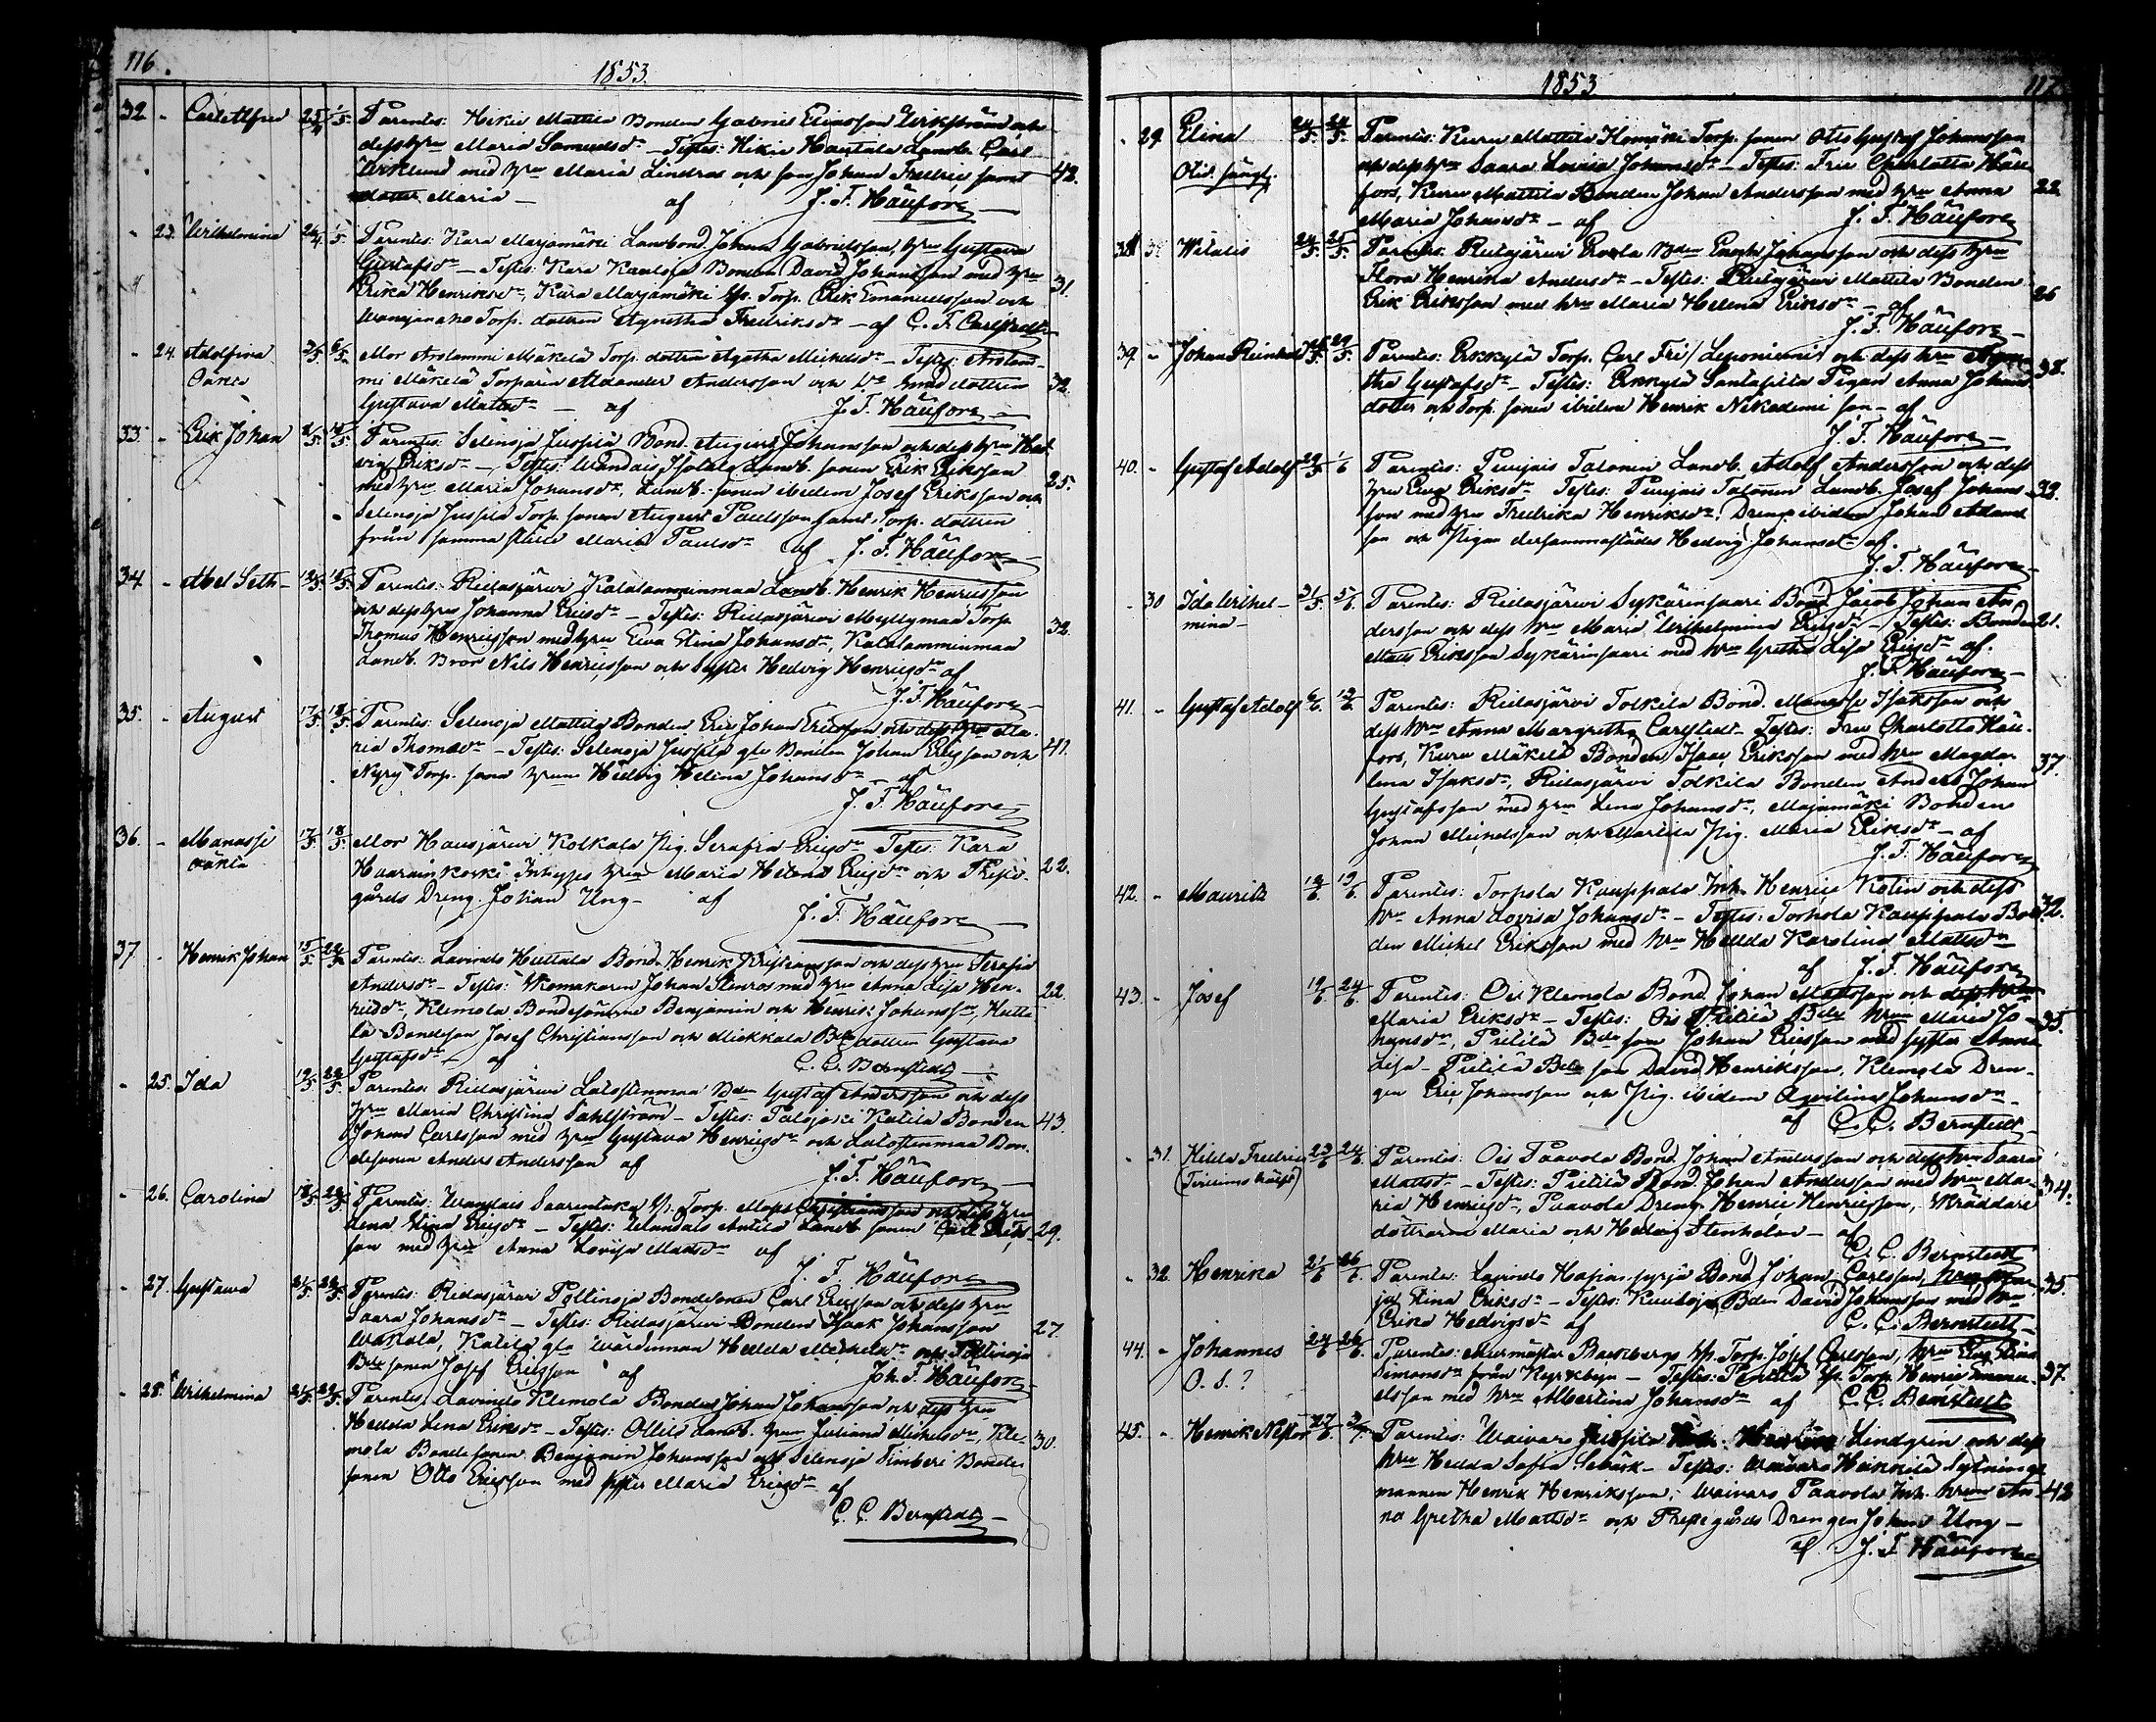 116.
1853.
32 - Carl Alfred 25/4 1/5 Parentes: Hikiä Mattila Bonden Gabriel Eliasson Wikström och
dess hru Maria Samuelsdr - Testes: Hikiä Hautala Landb. Carl
Wiklund med hru Maria Lindroos och son Johan Fredric samt 42.
dotter Maria - af J. F. Häufors
- 23. Wilhelmina 26/4 1/5 Parentes: Kara Marjamäki Landbond. Johan Gabrielsson, hru Gustava
Gustafsdr - Testes: Kara Kauloja Bonden David Johansson med hru
Erika Henriksdr, Kara Marjamäki Torp. Erik Emanuelsson och 31.
Torp. dottren Agnetha Fredriksdr - af C. F. Carlstedt
- 24. Adolfina 3/5 6/5 Mor Arolammi Mäkelä Torp. dottren Agatha Michelsdr - Testes: Arolam-
Oäkta mi Mäkelä Torparen Alexander Andersson och dottren 32.
Gustava Mattsdr - af J. F. Häufors
33. - Erik Johan Parentes: Selensjä Jussila Bond. August Johansson och dess hru Hed-
vig Eriksdr - Testes: Landb. sonen Erik Eriksson
med hru Maria Johansdr, Landb. sonen ibidem Josef Eriksson och 25.
Selensjä Jussila Torp. sonen August Paulsson samt Torp. dottren
från samma ställe Maria Paulsdr af J. F. Häufors
34 - Abel Seth - Parentes: Ridasjärvi Kalalamminmaa Landb. Henrik Henriksson
och dess hru Johanna Ericsdr - Testes: Ridasjärvi Myllymaa Torp.
Thomas Henricsson med hru Eva Stina Johansdr, Kalalamminmaa 32.
Landb. Bror Nils Henricsson och Syster Hedvig Henricsdr af
J. F. Häufors
35. - August 17/5 18/5 Parentes: Selensjä Mattila Bonden Eric Johan Ericsson och dess hru Ma-
ria Thomasdr - Testes: Selensjä Jussila gle Bonden Johan Ericsson och 41.
Torp. sons hrun Hedvig Helena Johansdr - af
J. F. Häufors
36. - Manasse 17/5 18/5 Mor Hausjärvi Kolkala Pig. Serafia Ericsdr - Testes: Kara
oäkta Inhyses hrun Maria Helena Ericsdr och Prest- 22.
gårds Dreng. Johan Ung - af
J. F. Häufors
37. - Henrik Johan 15/5 Parentes: Lavinto Huttala Bond. Henrik Kristiansson och dess hru Serafia
Andersdr - Testes: Skomakaren Johan Stenroos med hru Anna Lisa Hen-
riksdr, Klemola Bondesönerne Benjamin och Henrik Johansson, Hutta- 22.
la Bondeson Josef Christiansson och Mickkala Bde dottren Gustava
Gustafsdr - af C. C. Bernstedt
- 25. Ida 19/5 22/5 Parentes: Ridasjärvi Latostenmaa Bden Gustaf Andersson och dess
hru Maria Christina Dahlström - Testes: Palojoki Katila Bonden
Johan Carlsson med hru Gustava Henricsdr och Latostenmaa Bon- 43.
desonen Anders Andersson af
J. F. Häufors
- 26. Carolina 18/5 22/5 Parentes: Saarentaka Torp. Christiansson och dess hru
Lena Stina Ericsdr - Testes: Anttila Landb. sonen Carl
son med hru Anna Lovisa Mattsdr af 29.
J. F. Häufors
- 27. Gustava 21/5 22/5 Parentes: Ridasjärvi Poltinoja Bondesonen Carl Ericsson och dess hru
Saara Johansdr - Testes: Ridasjärvi Bonden Isaak Johansson
Wahala, Katila gla wärdinnan Hedda Michelsdr och Poltinoja 27.
Bde sonen Josef Ericsson af Joh. F. Häufors
- 28. Wilhelmina 21/5 22/5 Parentes: Lavinto Klemola Bonden Johan Johansson och dess hru
Hedda Lena Eriksdr - Testes: Ollila Landb. hrun Juliana Michelsdr, Kle-
mola Bondesonen Benjamin Johansson och Selensjä Timberi Bonde- 30.
sonen Otto Ericsson med syster Maria Ericsdr af
C. C. Bernstedt
1853
117
- 29. Elina 24/5 24/5 Parentes: Kuru Mattila Torp. sonen Otto Gustaf Johansson
och dess hru Saara Lovisa Johansdr - Testes: Fru Charlotta Häu-
fors, Kuru Mattila Bonden Johan Andersson med hru Anna 22
Maria Johansdr - af J. F. Häufors
38 Witalis 24/5 25/5 Parentes: Ridasjärvi Erola Bden Enoch Johansson och dess hru
Flora Henrika Andersdr - Testes: Ridasjärvi Mattila Bonden
Erik Eriksson med hru Maria Helena Eriksdr - af 26
J. F. Häufors
39. - Johan Reinhold Parentes: Erkkylä Torp. Carl Fri/Leponiemi och dess hru Agne-
tha Gustafsdr - Testes: Erkkylä Santapila Pigan Anna Johans- 38.
dotter och Torp. sonen ibidem Henrik Nikodemi son - af
J. F. Häufors
40. - Gustaf Adolf 29/5 1/6 Parentes: Puujais Talonen Landb. Adolf Andersson och dess
hru Eva Eriksdr Testes: Puujais Talonen Landb. Josef Johans-
son med hru Fredrika Henriksdr, Drengen ibidem Johan Adams- 32.
son och Pigan dersammastädes Hedvig Johansdr af.
J. F. Häufors
- 30 Ida Wilhel- 31/5 5/6 Parentes: Ridasjärvi Sykärinsaari Bond Jacob Johan An-
mina - dersson och dess hru Maria Wilhelmina Ericsdr - Testes: Bonden 21.
Matts Eriksson Sykärinsaari med hru Gretha Lisa Ericsdr af.
J. F. Häufors
41. - Gustaf Adolf 6/6 12/6 Parentes: Ridasjärvi Tolkila Bond. Manasse Isaksson och
dess hru Anna Margretha Carlstedt - Testes: Fru Charlotta Häu-
fors, Kuru Mäkelä Bonden Isaac Eriksson med hru Magda-
lena Isaksdr, Ridasjärvi Tolkila Bonden Anders Johan 37.
Gustafsson med hru Lena Johansdr, Majamäki Bonden
Johan Michelsson och Marttila Pig. Maria Eriksdr - af
J. F. Häufors
42. - Maurits 12/6 19/6 Parentes: Torhola Kauppala Inh. Henric Kolin och dess
hru Anna Lovisa Johansdr - Testes: Torhola Kauppala Bon- 32.
den Michel Eriksson med hru Hedda Karolina Mattsdr
af J. F. Häufors
43. - Josef 19/6 24/6 Parentes: Ois Klemola Bond Johan Mattsson och dess hru
Maria Eriksdr - Testes: Ois Pietilä Bde hrun Maria Jo-
hansdr, Pietilä Bde son Johan Ericsson med syster Anna 35.
Lisa - Pietilä Bde son David Henriksson, Klemola Dren-
gen Eric Johansson och Pig. ibidem Aqvilina Johansdr -
af C. C. Bernstedt
- 31. Hilda Fredrica 23/6 24/6 Parentes: Ois Paavola Bond Johan Andersson och dess hru Saara
Mattsdr - Testes: Pietilä Bond. Johan Andersson med hru Ma-
ria Henricsdr, Paavola Dreng Henric Henricsson, Skräddare 34.
döttrarne Maria och Hedvig Stenholm - af
C. C. Bernstedt
- 32. Henrika 21/6 26/6 Parentes: Lavinto Bond Johan Carlsson, hru
Stina Eriksdr - Testes: Kuuloja Bden David Johansson med hru 35.
Erika Hedvigsdr af C. C. Bernstedt
44. - Johannes 24/6 26/6 Parentes: Torp. Josef Carlsson, hru Eva Stina
O. S.? Simonsdr från Kyrkbyn - Testes: Torp. Henric Emanu- 37.
elsson med hru Albertina Johansdr af C. C. Bernstedt
45. - Henrik Nestor 27/6 3/7 Parentes: Waivars Jussila Lindgren och dess
hru Hedda Sofia - Testes: Waivars Heikkilä Sytnings-
mannen Henrik Henriksson, Waivars Paavola Inh. hrun An- 42
na Gretha Mattsdr och Prestgårds Drengen Johan Ung -
af J. F. Häufors